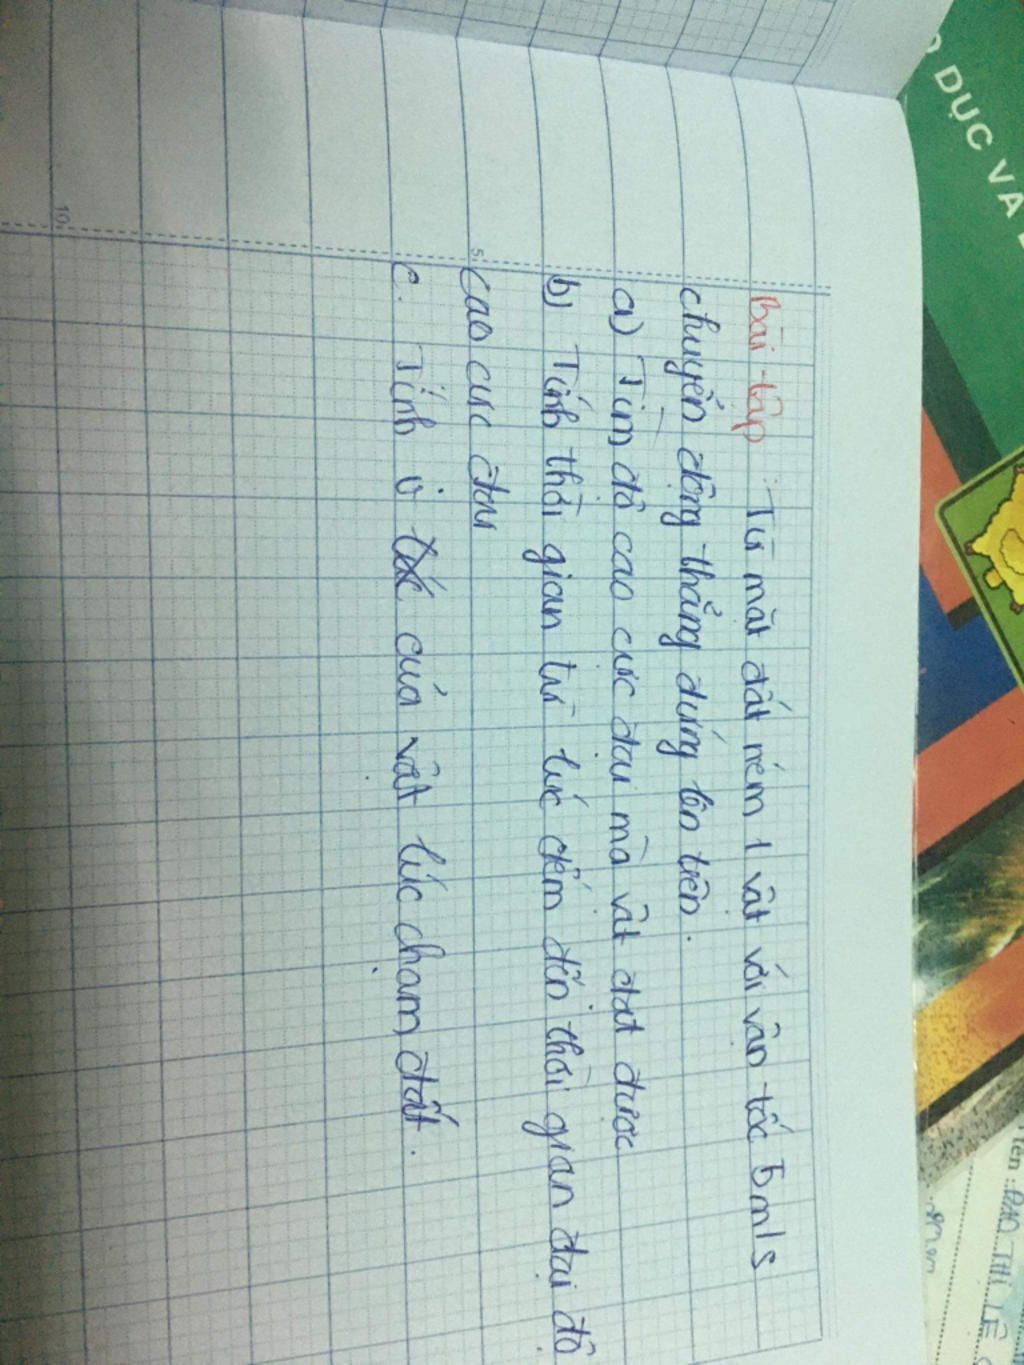 Bài tập : Từ mặt đất ném 1 vật với vận tốc 5m/s
chuyển động thẳng đứng lên trên.
a) Tìm độ cao cực đại mà vật đạt được
b) Tính thời gian từ lúc đếm đến thời gian đại độ
cao cực đại
c. Tính v tốc của vật lúc chạm đất.
5
10
DỤC VÀ
tên : ĐÀO THỊ LÊ